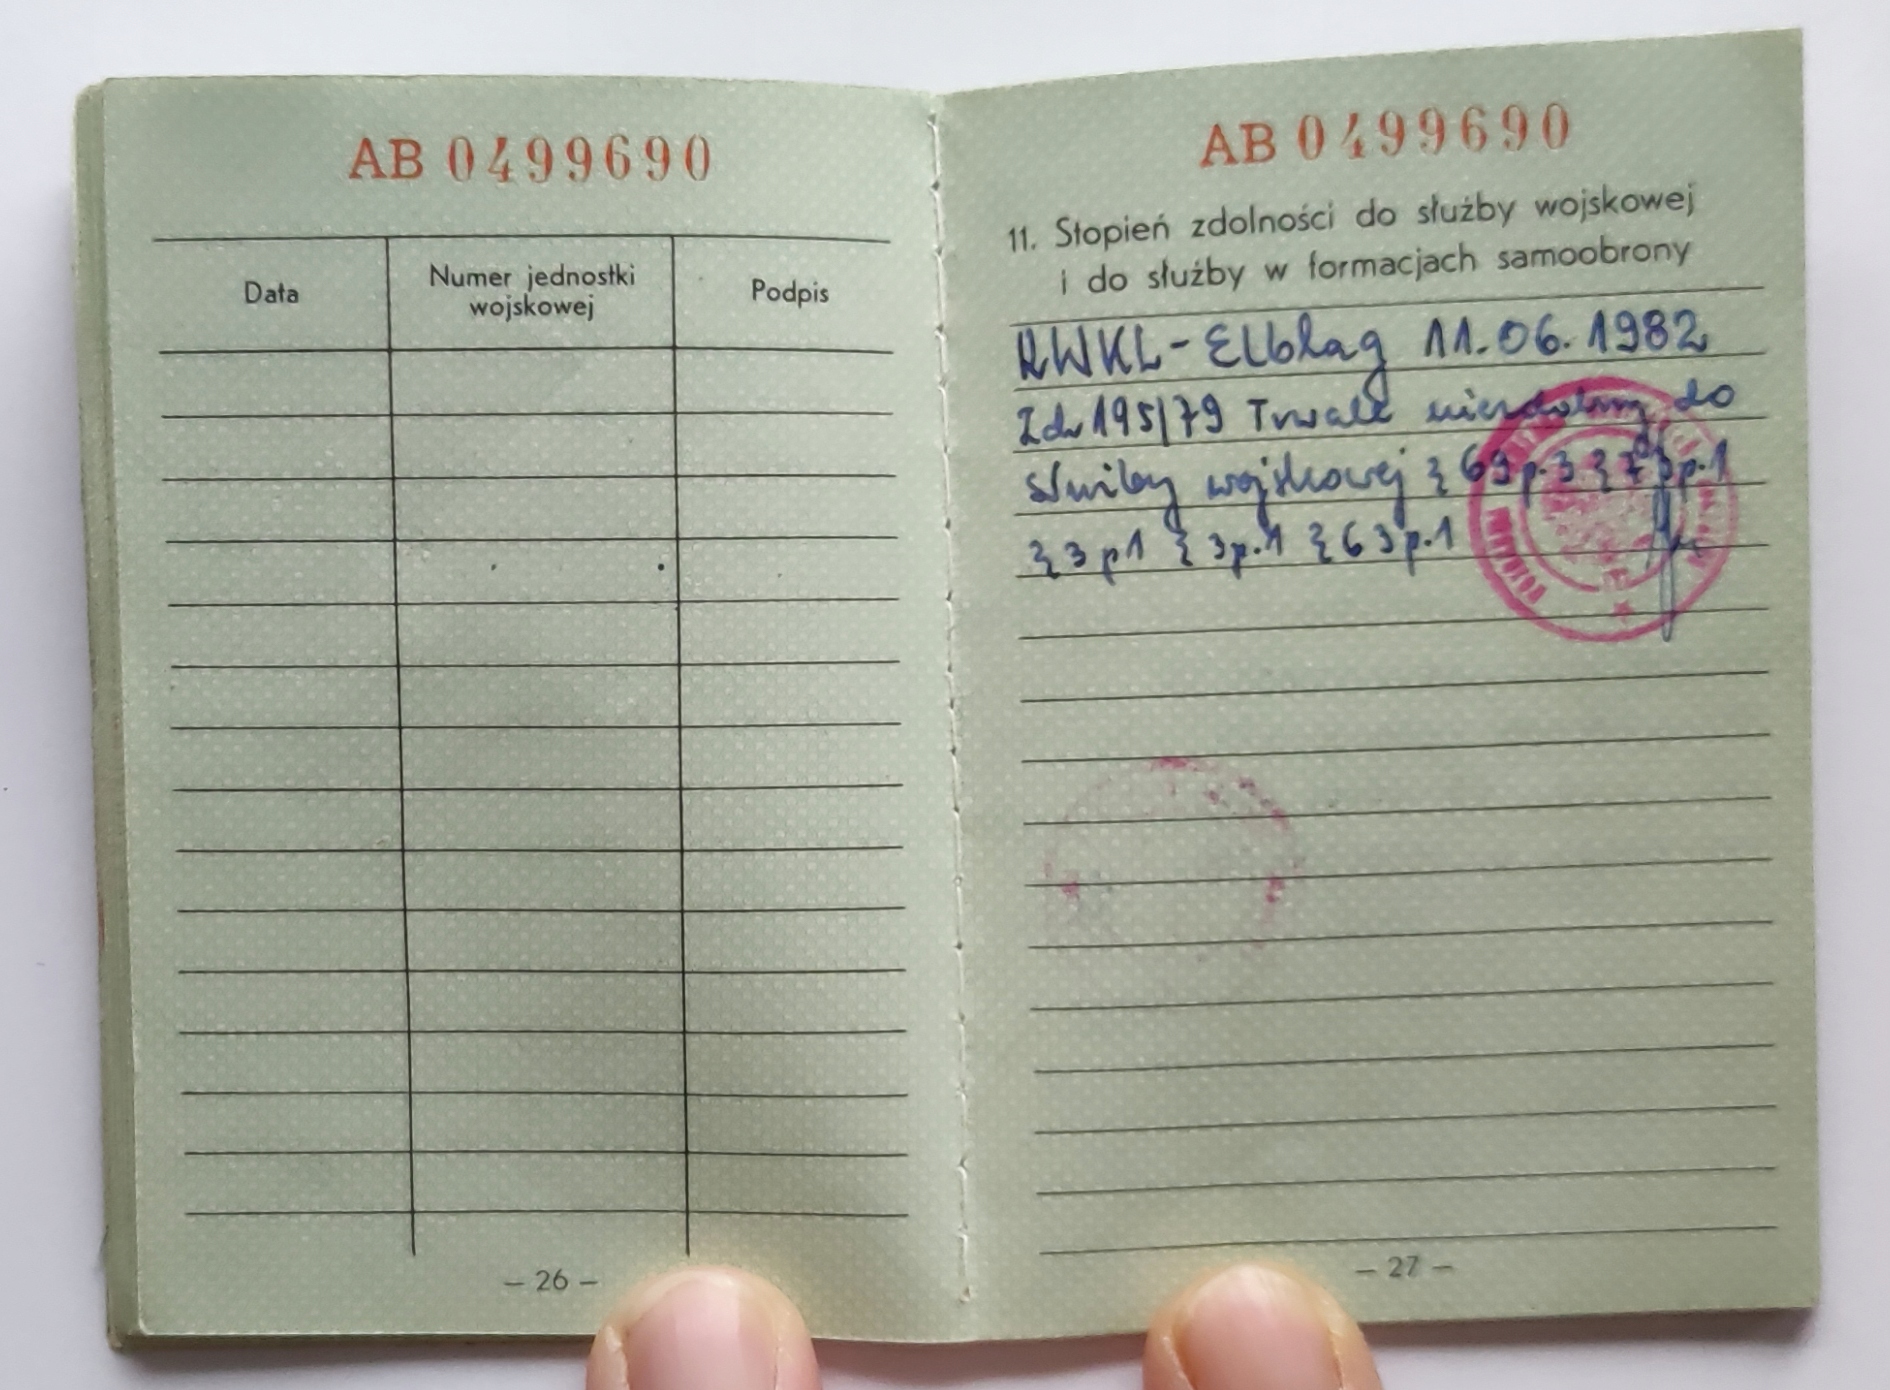 AB 0499690
Data
Numer jednostki
wojskowej
Podpis
– 26 –
AB 0499690
11. Stopień zdolności do służby wojskowej
i do służby w formacjach samoobrony
RWKL - Elbląg 11.06.1982
Zdr 195/79 Trwale niezdolny do
służby wojskowej § 69 p. 3 § 73 p. 1
§ 3 p 1 § 3 p. 1 § 63 p. 1
– 27 –